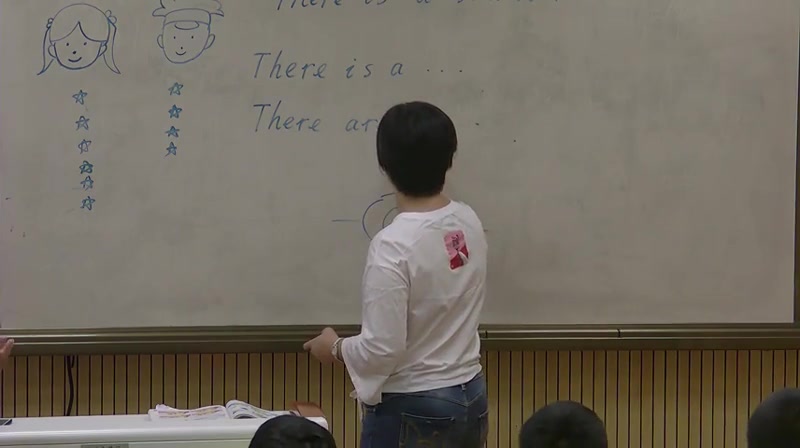 There is a
There is a ...
There ar